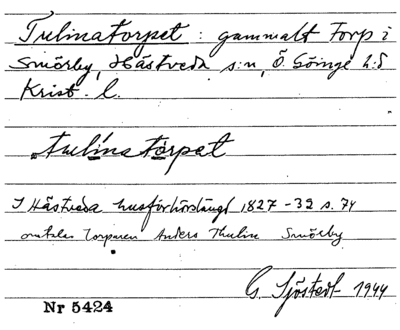 Tulinatorpet : gammalt torp i
Smörby, Hästveda s:n, Ö. Göinge h:d
Krist. l.
tulinatorpat
I Hästveda husförhörslängd 1827-32 s. 74
omtalas torparen Anders Thulin Smörby
G. Sjöstedt 1944
Nr 5424